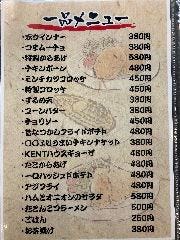 一品メニュー
・赤ウインナー 380円
・つまみーチョ 380円
・特製からあげ 580円
・チキンボーン 480円
・モンチカツコロッケ 450円
・特製コロッケ 450円
・するめ天 380円
・コーンバター 380円
・チョリソー 450円
・昔なつかしフライドポテト 480円
・うまいチキンナゲット 380円
・KENTハウスギョーザ 480円
・たこからあげ 480円
・ハッシュドポテト 480円
・アジフライ 480円
・ハムとオニオンのサラダ 580円
・ラーメン 500円
・ごはん 250円
・お茶漬け 380円